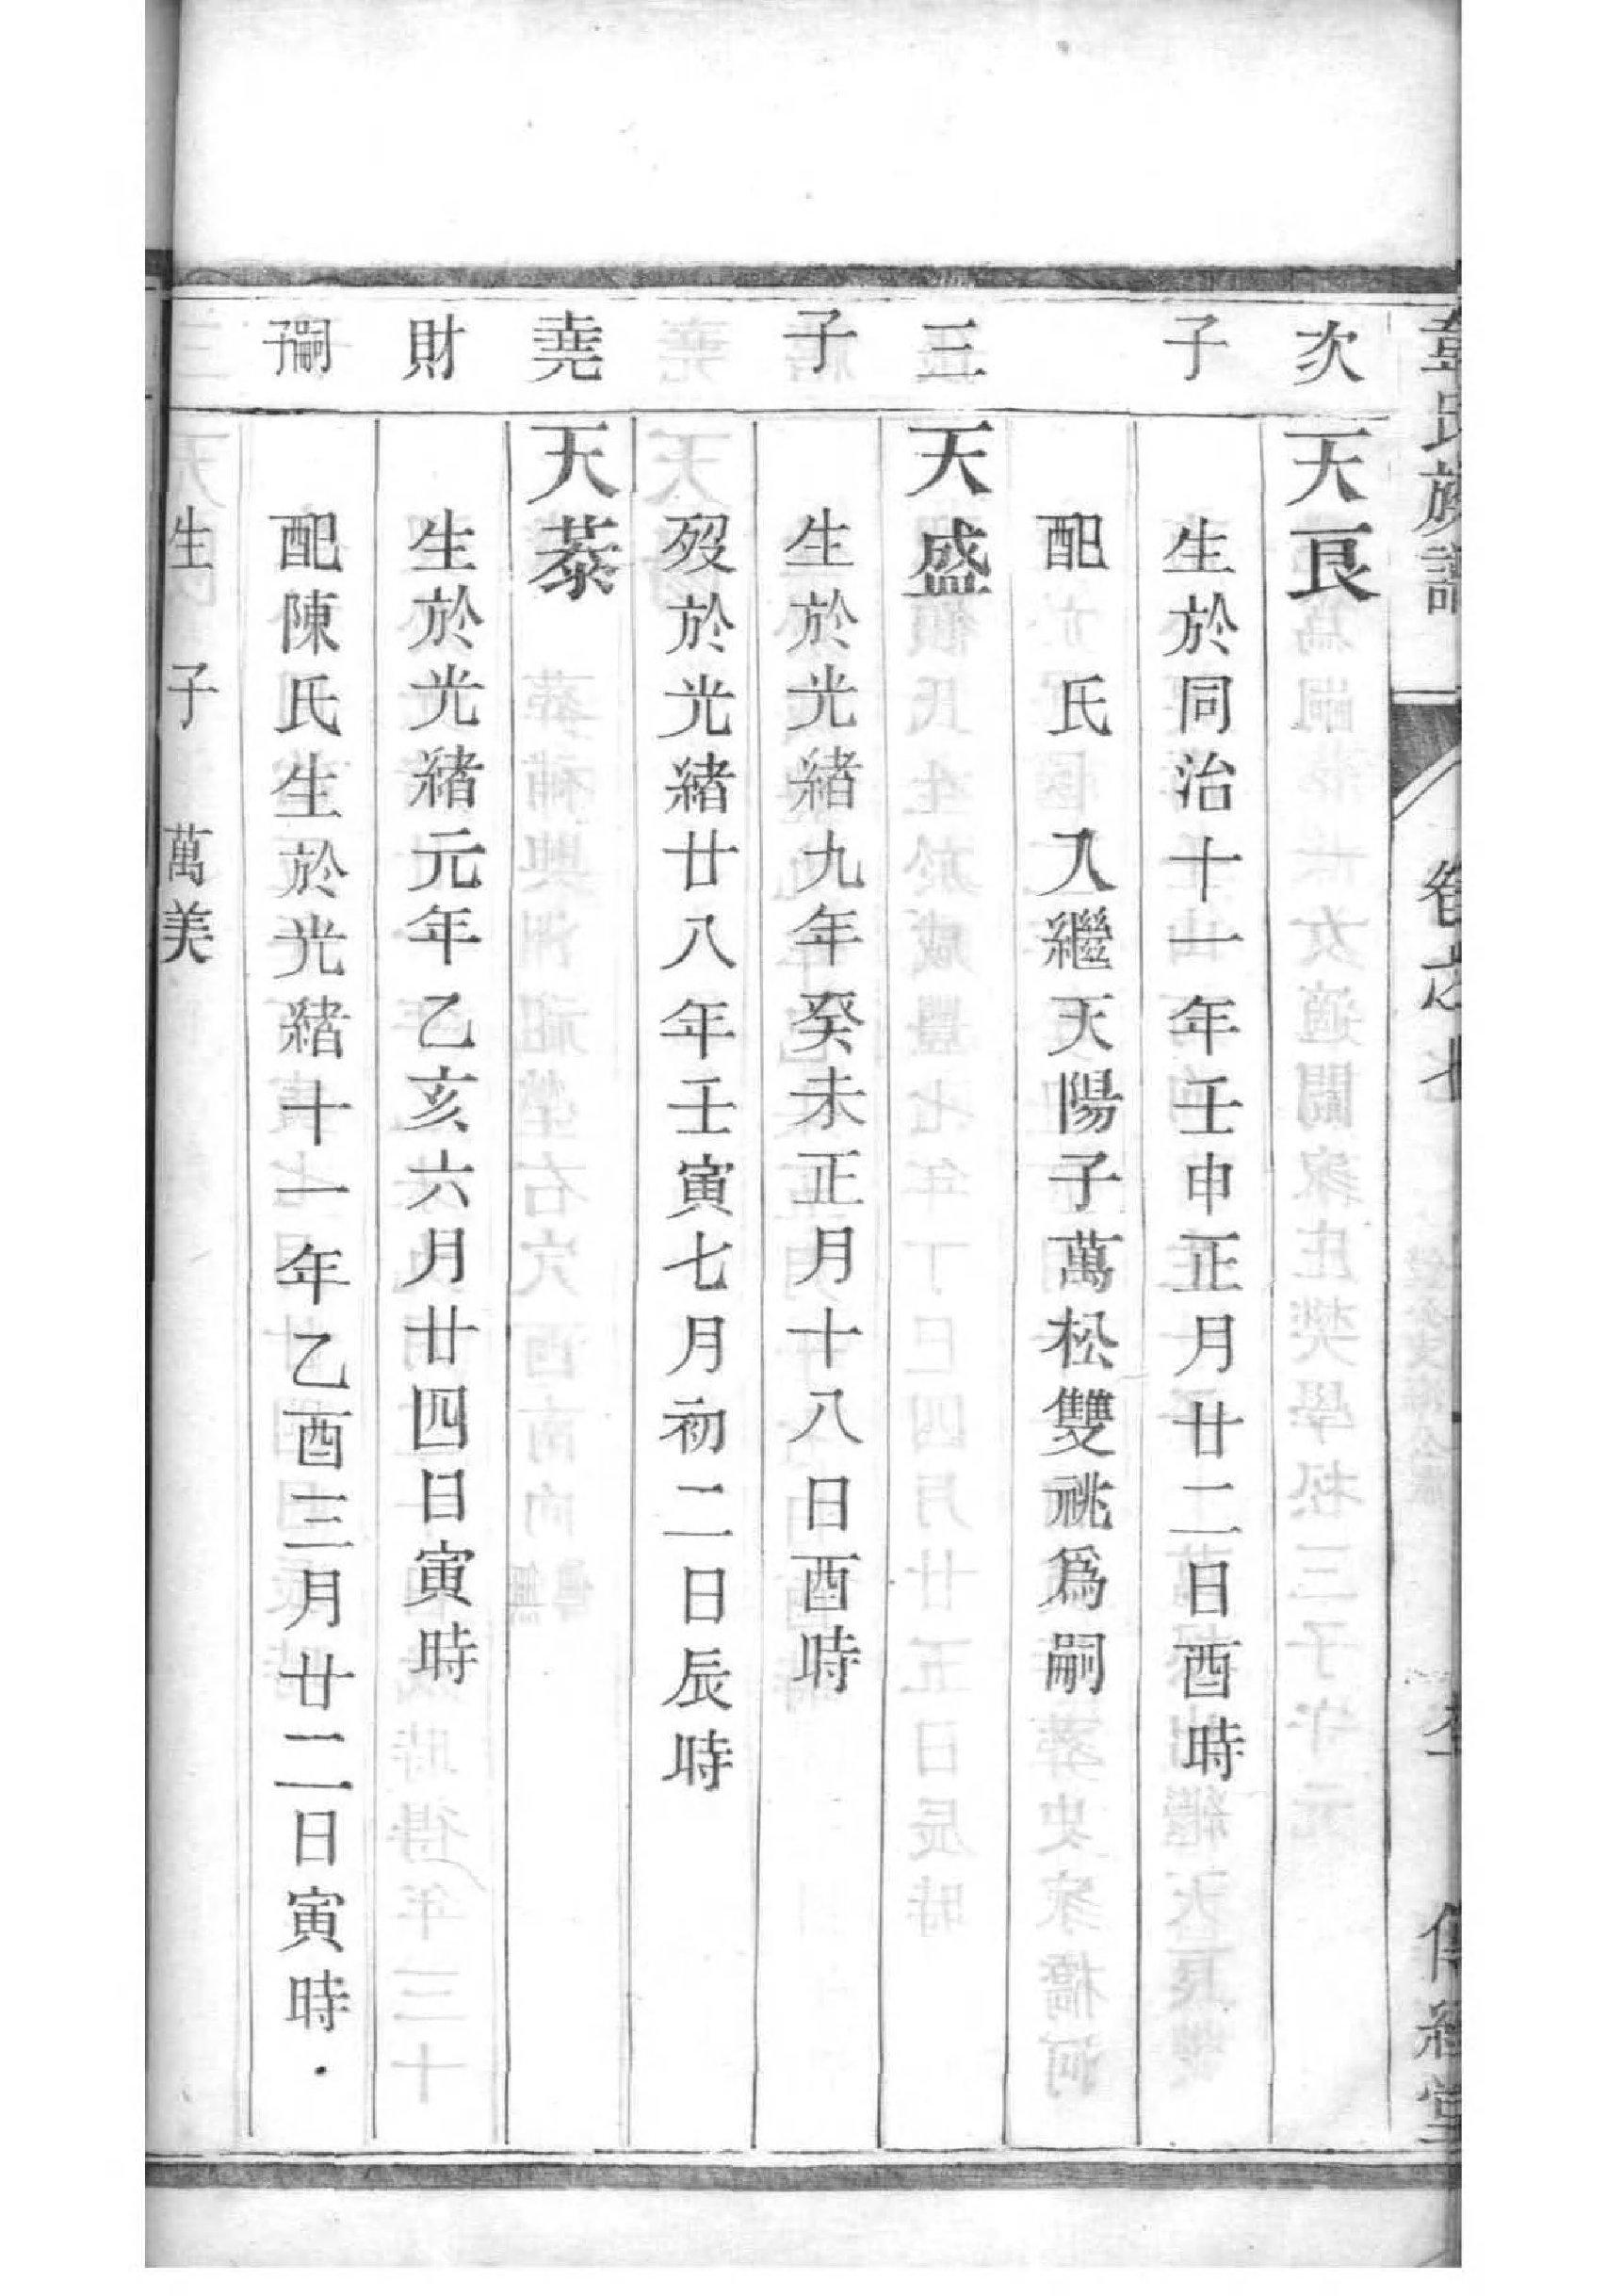 氏族譜
卷之七
傳經堂
次 天良
子 生於同治十一年壬申正月廿二日酉時
配 氏 入繼天陽子萬松雙祧爲嗣
三 天盛
子 生於光緒九年癸未正月十八日酉時
歿於光緒廿八年壬寅七月初二日辰時
堯 天泰
財 生於光緒元年乙亥六月廿四日寅時
嗣子 配陳氏生於光緒十一年乙酉三月廿二日寅時
生 子 萬美